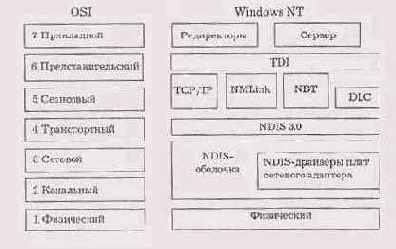 OSI
7 Прикладной
6 Представительский
5 Сеансовый
4 Транспортный
3 Сетевой
2 Канальный
1 Физический
Windows NT
Редиректоры
Сервер
TDI
TCP/IP
NWLink
NBT
DLC
NDIS 3.0
NDIS-
оболочка
NDIS-драйверы плат
сетевого адаптера
Физический